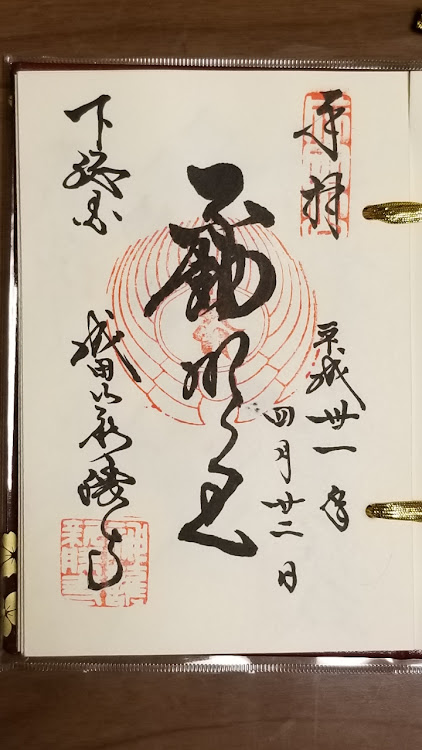 奉拝
平成卅一年
四月廿二日
不動明王
下総国
成田山新勝寺